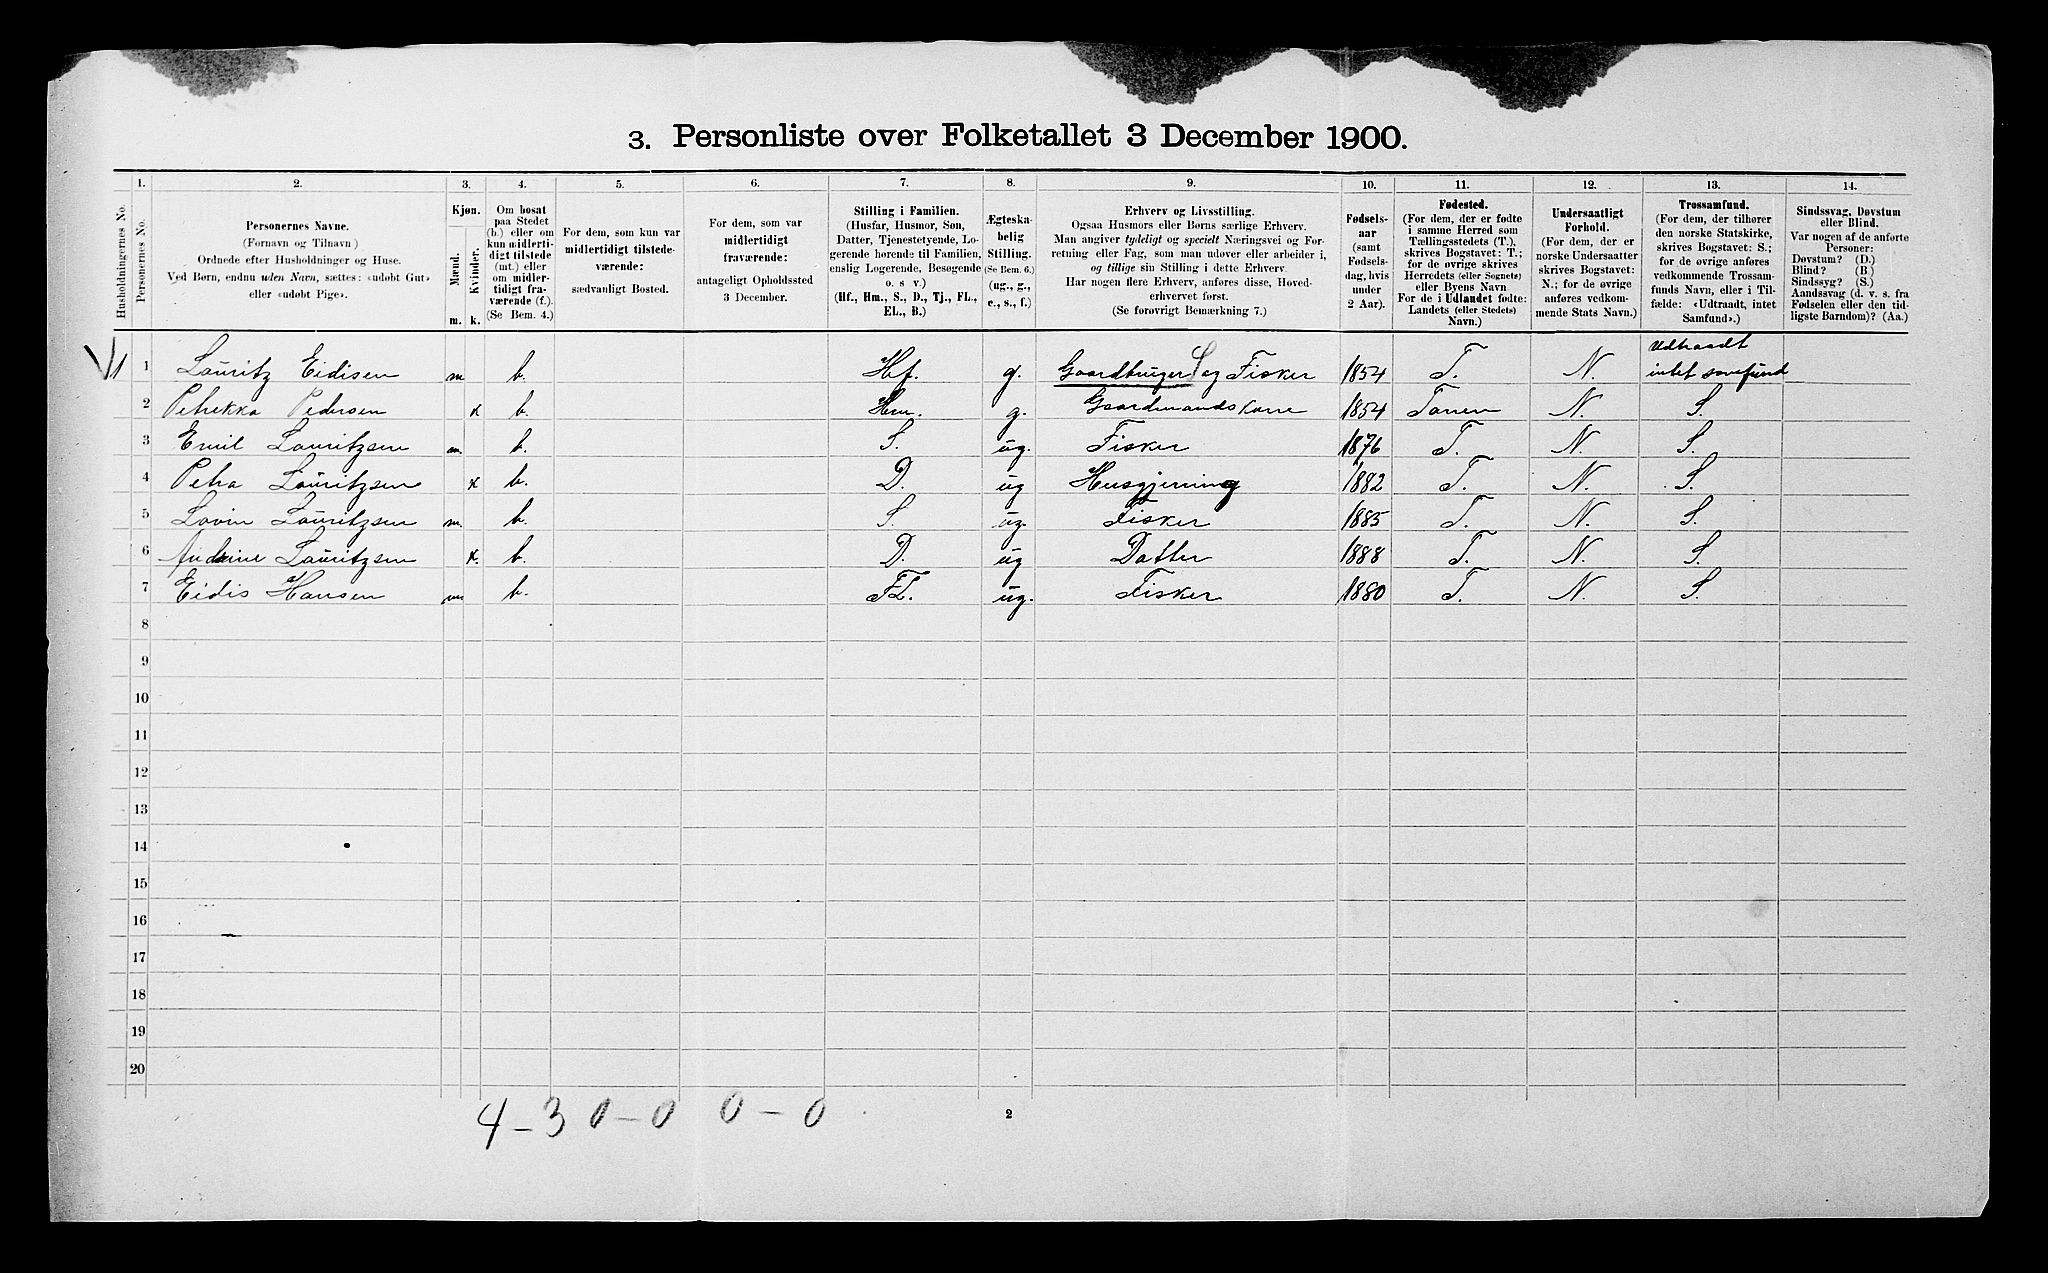 3. Personliste over Folketallet 3 December 1900.
1. 2. 3. 4. 5. 6. 7. 8. 9. 10. 11. 12. 13. 14.
Husholdningernes No.
Personernes No.
Personernes Navne.
(Fornavn og Tilnavn)
Ordnede efter Husholdninger og Huse.
Ved Børn, endnu uden Navn, sættes: «udøbt Gut»
eller «udøbt Pige».
Kjøn.
Mænd.
Kvinder.
m. k.
Om bosat
paa Stedet
(b.) eller om
kun midlerti-
digt tilstede
(mt.) eller
om midler-
tidigt fra-
værende (f.).
(Se Bem. 4.)
For dem, som kun var
midlertidigt tilstede-
værende:
sædvanligt Bosted.
For dem, som var
midlertidigt
fraværende:
antageligt Opholdssted
3 December.
Stilling i Familien.
(Husfar, Husmor, Søn,
Datter, Tjenestetyende, Lo-
gerende hørende til Familien,
enslig Logerende, Besøgende
o. s v.)
(Hf., Hm., S., D., Tj., FL.,
EL., B.)
Ægteska-
belig
Stilling.
(Se Bem. 6.)
(ug., g.,
e., s., f.)
Erhverv og Livsstilling.
Ogsaa Husmors eller Børns særlige Erhverv.
Man angiver tydeligt og specielt Næringsvei og For-
retning eller Fag, som man udøver eller arbeider i,
og tillige sin Stilling i dette Erhverv.
Har nogen flere Erhverv, anføres disse, Hoved-
erhvervet først.
(Se forøvrigt Bemærkning 7.)
Fødsels-
aar
(samt
Fødsels-
dag, hvis
under
2 Aar).
Fødested.
(For dem, der er fødte
i samme Herred som
Tællingsstedets (T.),
skrives Bogstavet: T.;
for de øvrige skrives
Herredets (eller Sognets)
eller Byens Navn
For de i Udlandet fødte:
Landets (eller Stedets)
Navn.)
Undersaatligt
Forhold.
(For dem, der er
norske Undersaatter
skrives Bogstavet:
N.; for de øvrige
anføres vedkom-
mende Stats Navn.)
Trossamfund.
(For dem, der tilhører
den norske Statskirke,
skrives Bogstavet: S.;
for de øvrige anføres
vedkommende Trossam-
funds Navn, eller i Til-
fælde: «Udtraadt, intet
Samfund».)
Sindssvag, Døvstum
eller Blind.
Var nogen af de anførte
Personer:
Døvstum? (D.)
Blind? (B.)
Sindssyg? (S.)
Aandssvag (d. v. s. fra
Fødselen eller den tid-
ligste Barndom)? (Aa.)
Udtraadt
1 1 Lauritz Eidisen m b. Hf. g. Gaardbruger og Fisker 1854 T. N. intet
2 Petrekka Pedersen x b. Hm. g. Gaardmandskone 1854 Tanen N. S.
3 Emil Lauritzsen m. b. S. ug. Fisker 1876 T. N. S.
4 Petra Lauritzsen x b. D. ug Husgjerning 1882 T. N. S.
5 Lavin Lauritzsen m. b. S. ug. Fisker 1885 T. N. S.
6 Andrine Lauritzsen x. b. D. ug Datter 1888 T. N. S.
7 Eidis Hansen m b. FL. ug. Fisker 1880 T. N. S.
8
9
10
11
12
13
14
15
16
17
18
19
20
4-3 0-0 0-0
2